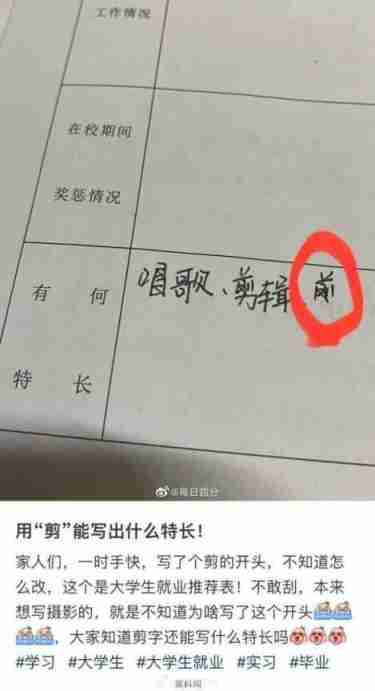 工作情况
在校期间
奖惩情况
有何
特长
唱歌、剪辑、前
@每日甜分
用“剪”能写出什么特长！
家人们，一时手快，写了个剪的开头，不知道怎
么改，这个是大学生就业推荐表！不敢刮，本来
想写摄影的，就是不知道为啥写了这个开头
，大家知道剪字还能写什么特长吗
#学习 #大学生 #大学生就业 #实习 #毕业